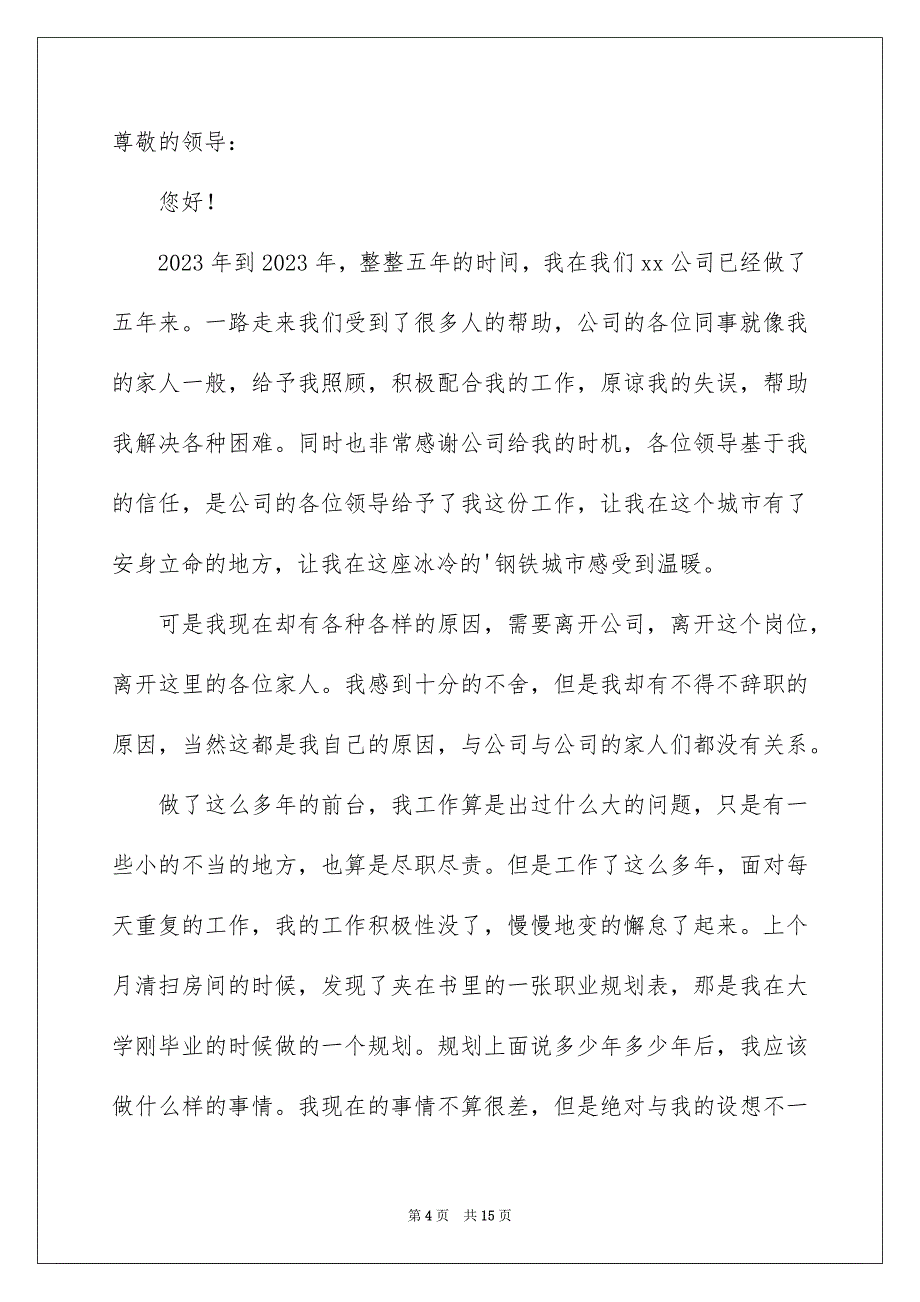 尊敬的领导：
您好！
2023 年到 2023 年，整整五年的时间，我在我们 xx 公司已经做了
五年来。一路走来我们受到了很多人的帮助，公司的各位同事就像我
的家人一般，给予我照顾，积极配合我的工作，原谅我的失误，帮助
我解决各种困难。同时也非常感谢公司给我的时机，各位领导基于我
的信任，是公司的各位领导给予了我这份工作，让我在这个城市有了
安身立命的地方，让我在这座冰冷的'钢铁城市感受到温暖。
可是我现在却有各种各样的原因，需要离开公司，离开这个岗位，
离开这里的各位家人。我感到十分的不舍，但是我却有不得不辞职的
原因，当然这都是我自己的原因，与公司与公司的家人们都没有关系。
做了这么多年的前台，我工作算是出过什么大的问题，只是有一
些小的不当的地方，也算是尽职尽责。但是工作了这么多年，面对每
天重复的工作，我的工作积极性没了，慢慢地变的懈怠了起来。上个
月清扫房间的时候，发现了夹在书里的一张职业规划表，那是我在大
学刚毕业的时候做的一个规划。规划上面说多少年多少年后，我应该
做什么样的事情。我现在的事情不算很差，但是绝对与我的设想不一
第 4 页 共 15 页